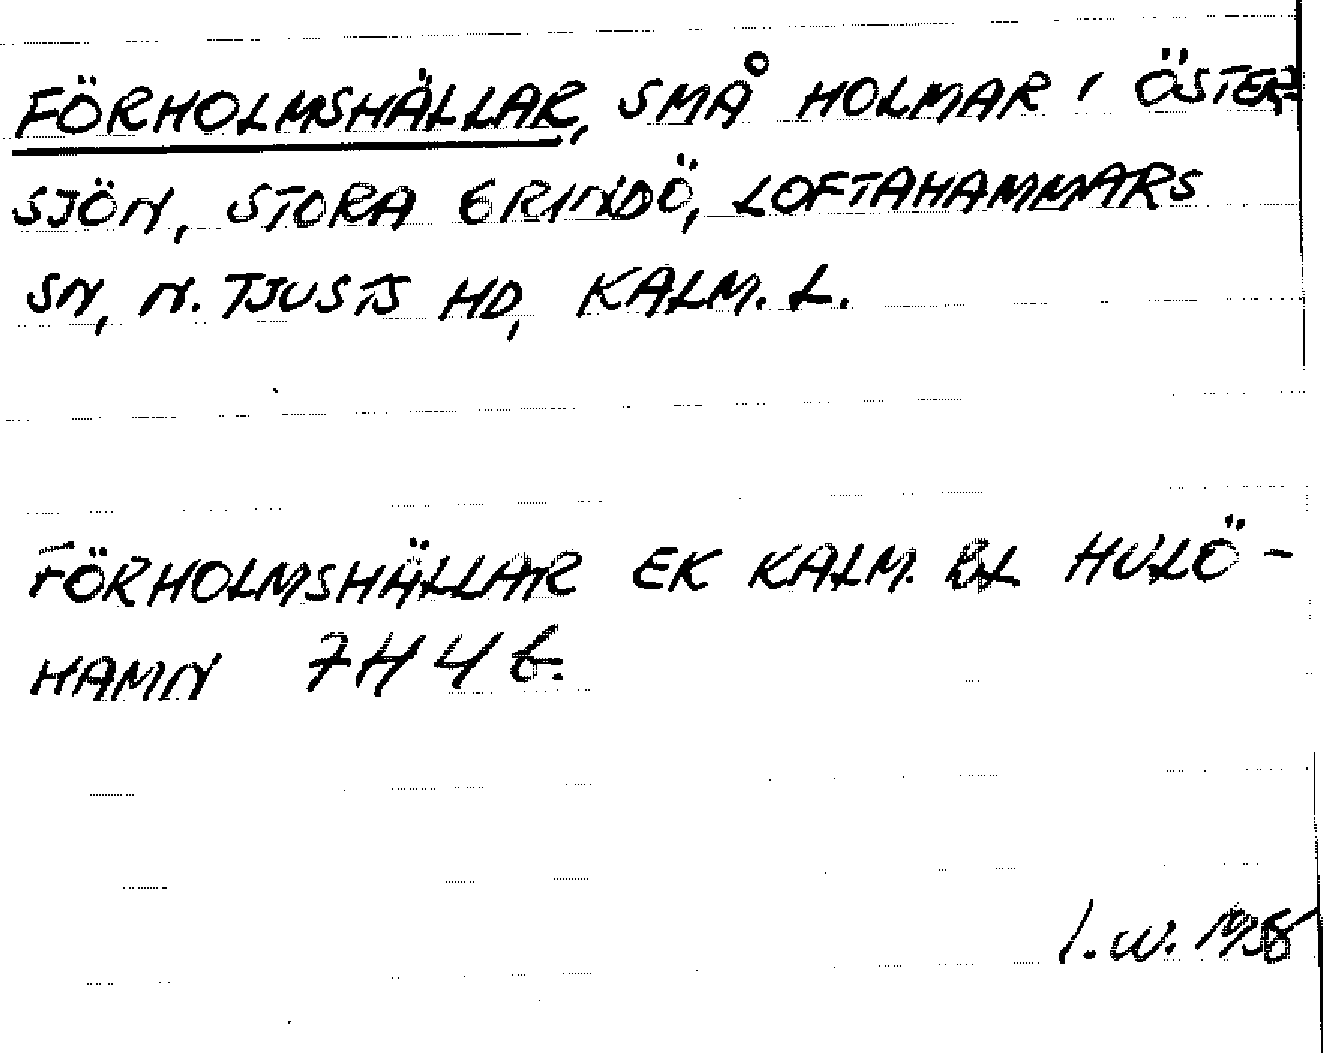 FÖRHOLMSHÄLLAR, SMÅ HOLMAR I ÖSTER-
SJÖN, STORA GRINDÖ, LOFTAHAMMARS
SN, N. TJUSTS HD, KALM. L.
FÖRHOLMSHÄLLAR EK KALM. BL HULÖ-
HAMN 7H4b.
I.W.